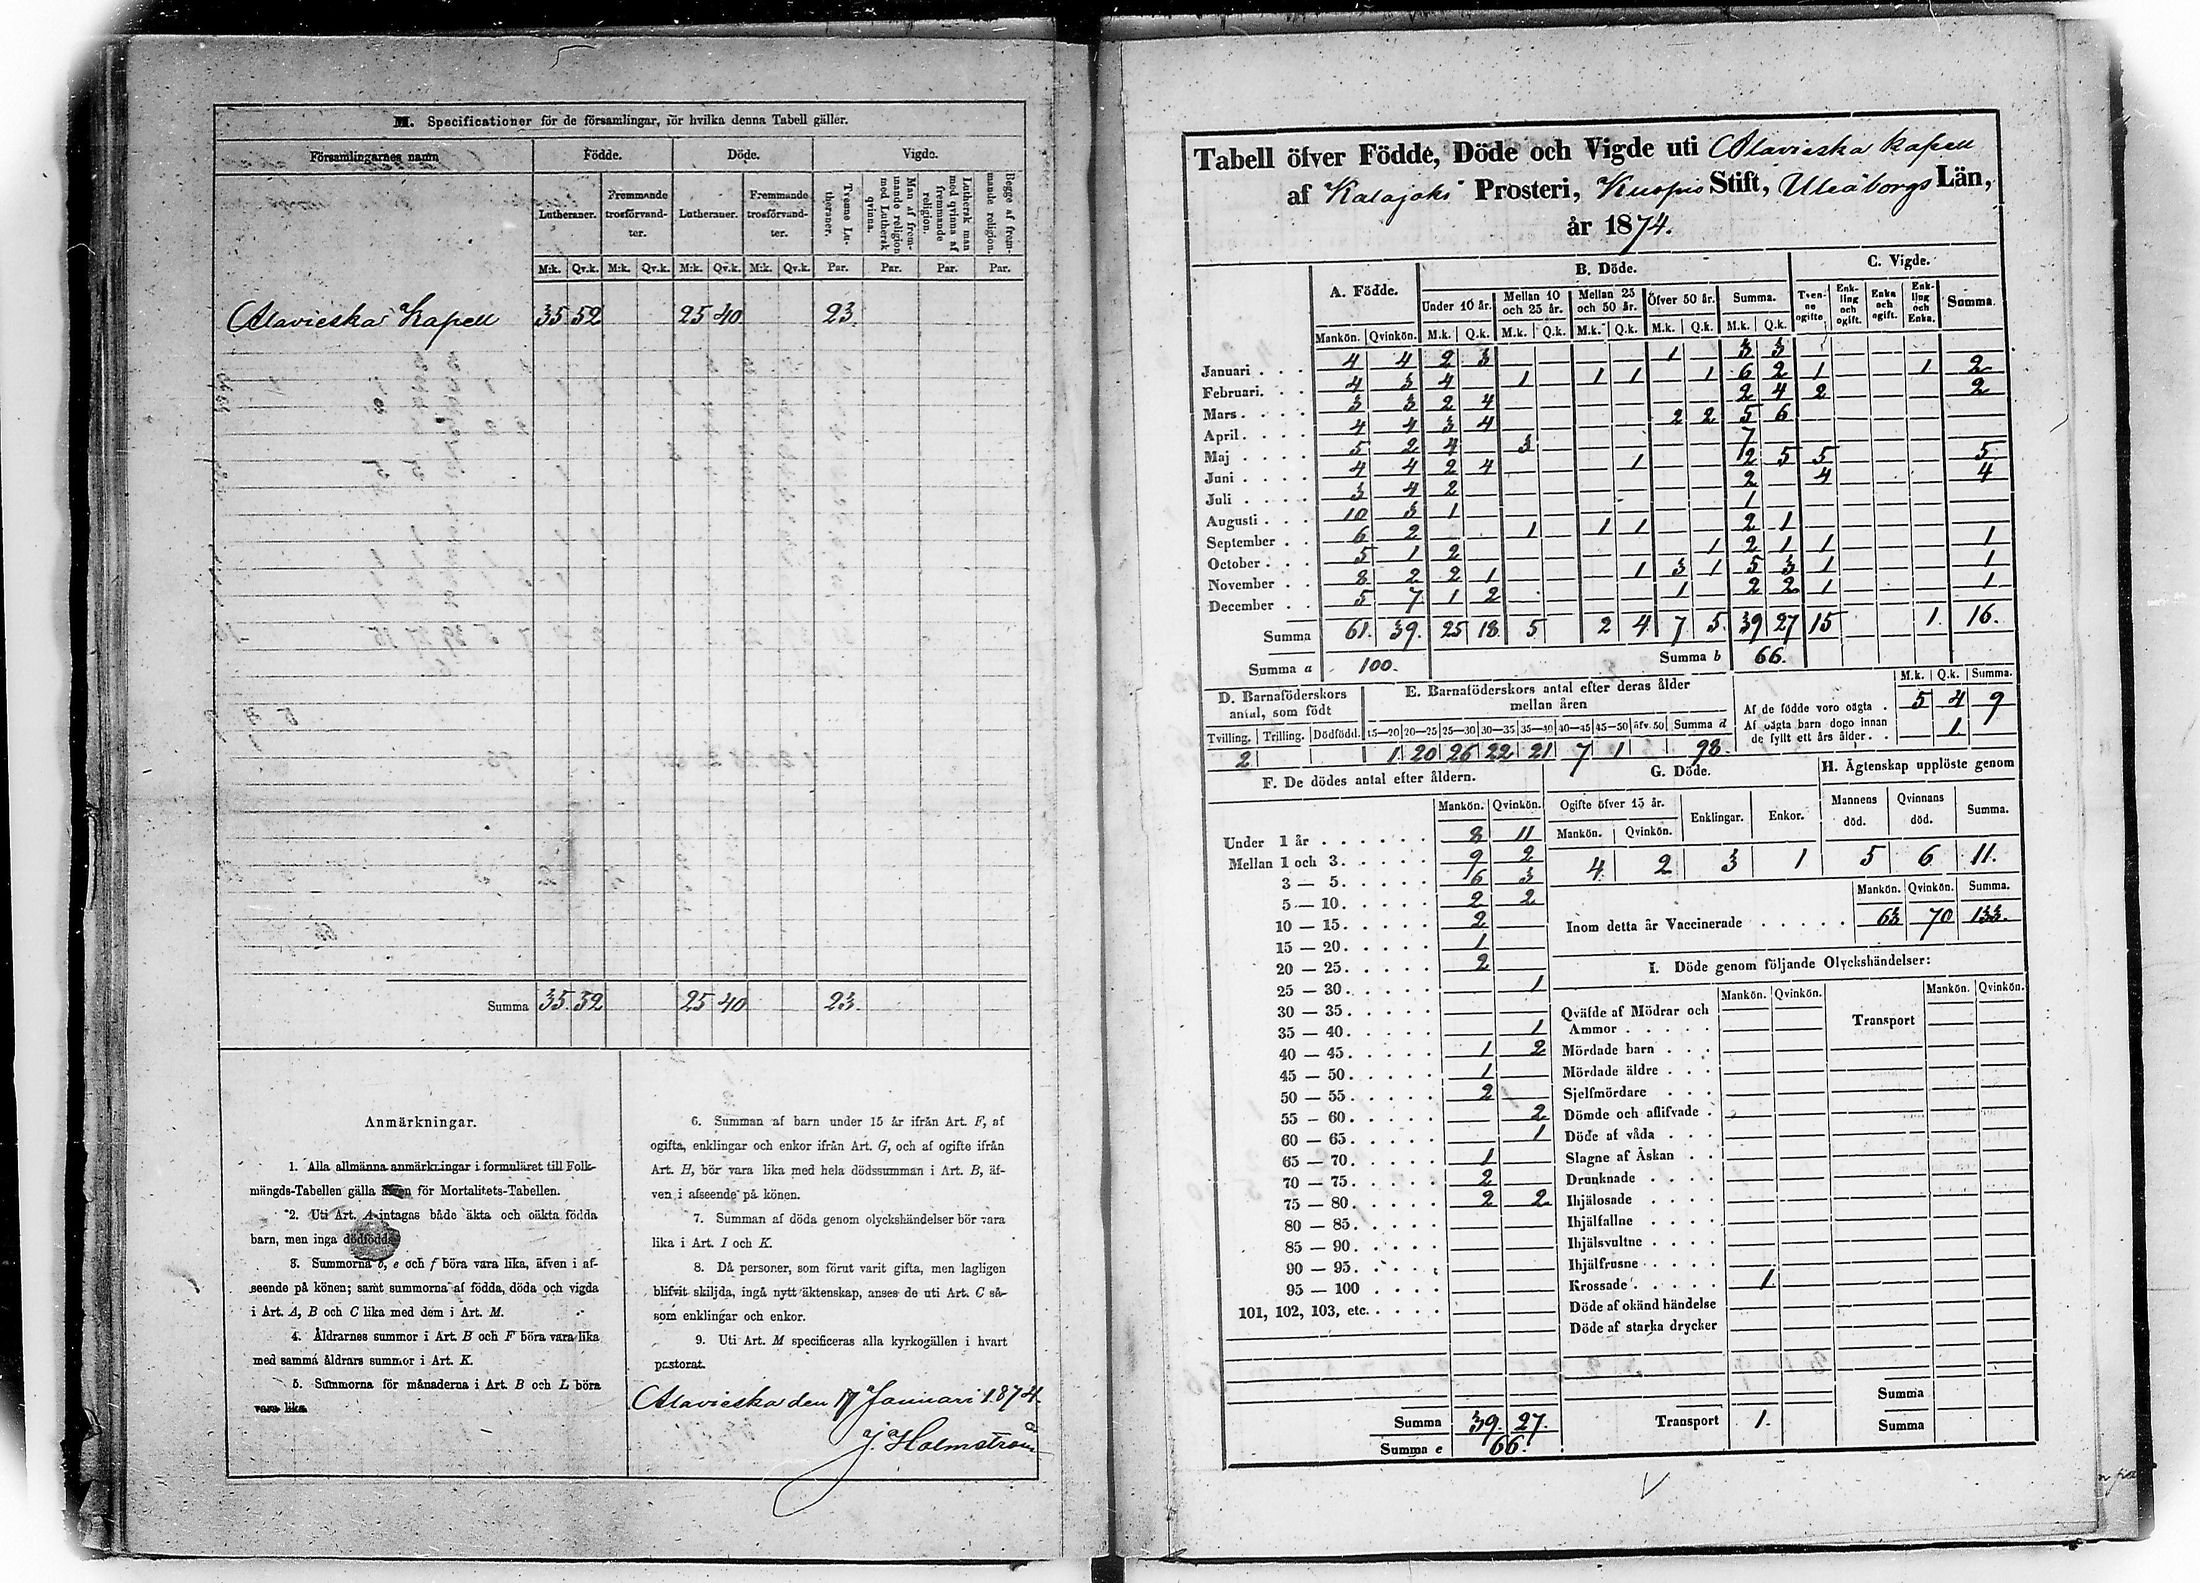 M. Specificationer för de församlingar, för hvilka denna Tabell gäller.
Församlingarnes namn | Födde. | Döde. | Vigde.
Lutheraner. | Fremmande trosförvandter. | Lutheraner. | Fremmande trosförvandter. | Tvenne Lutheraner. | Man af fremmande religion med Luthersk qvinna. | Luthersk man med qvinna af fremmande religion. | Begge af fremmande religion.
M:k. | Qv.k. | M:k. | Qv.k. | M:k. | Qv.k. | M:k. | Qv.k. | Par. | Par. | Par. | Par.
Alavieska Kapell 35 52 25 40 23.
Summa 35. 52 25 40 23.
Anmärkningar.
1. Alla allmänna anmärkningar i formuläret till Folk-
mängds-Tabellen gälla även för Mortalitets-Tabellen.
2. Uti Art. A intagas både äkta och oäkta födda
barn, men inga dödfödda
3. Summorna b, e och f böra vara lika, äfven i af-
seende på könen; samt summorna af födda, döda och vigda
i Art. A, B och C lika med dem i Art. M.
4. Åldrarnes summor i Art. B och F böra vara lika
med samma åldrars summor i Art. K.
5. Summorna för månaderna i Art. B och L böra
vara lika.
6. Summan af barn under 15 år ifrån Art. F, af
ogifta, enklingar och enkor ifrån Art. G, och af ogifte ifrån
Art. H, bör vara lika med hela dödssumman i Art. B, äf-
ven i afseende på könen.
7. Summan af döda genom olyckshändelser bör vara
lika i Art. I och K.
8. Då personer, som förut varit gifta, men lagligen
blifvit skiljda, ingå nytt äktenskap, anses de uti Art. C så-
som enklingar och enkor.
9. Uti Art. M specificeras alla kyrkogällen i hvart
pastorat.
Alavieska den 17 Januari 1874.
J. Holmström
Tabell öfver Födde, Döde och Vigde uti Alavieska kapell
af Kalajoki Prosteri, Kuopio Stift, Uleåborgs Län,
år 1874.
A. Födde. | B. Döde. | C. Vigde.
Under 10 år. | Mellan 10 och 25 år. | Mellan 25 och 50 år. | Öfver 50 år. | Summa. | Tvenne ogifte | Enkling och ogift. | Enka och ogift. | Enkling och Enka. | Summa.
Mankön. | Qvinkön. | M.k. | Q.k. | M.k. | Q.k. | M.k. | Q.k. | M.k. | Q.k. | M.k. | Q.k.
Januari . . . 4 4 2 3 1 3 3
Februari. . . 4 3 4 1 1 1 1 6 2 1 1 2
Mars . . . . 3 3 2 4 2 4 2 2
April . . . . 4 4 3 4 2 2 5 6
Maj . . . . 5 2 4 3 7
Juni . . . . 4 4 2 4 1 2 5 5 5
Juli . . . . 3 4 2 2 4 4
Augusti . . . 10 3 1 1
September . . 6 2 1 1 1 2 1
October . . . 5 1 2 1 2 1 1 1
November . . 8 2 2 1 1 3 1 5 3 1 1
December . . 5 7 1 2 1 2 2 1 1
Summa 61. 39. 25 18. 5 2 4 7 5. 39 27 15 1. 16.
Summa a 100. Summa b 66.
D. Barnaföderskors antal, som födt | E. Barnaföderskors antal efter deras ålder mellan åren | M.k. | Q.k. | Summa.
Tvilling. | Trilling. | Dödfödd. | 15—20 | 20—25 | 25—30 | 30—35 | 35—40 | 40—45 | 45—50 | öfv. 50 | Summa d
2 1 20 26 22 21 7 1 98.
Af de födde voro oägta . 5 4 9
Af oägta barn dogo innan
de fyllt ett års ålder . . 1
F. De dödes antal efter åldern.
Mankön. | Qvinkön.
Under 1 år . . . . . . 8 11
Mellan 1 och 3. . . . . 9 2
3 — 5. . . . . 6 3
5 — 10. . . . . 2 2
10 — 15. . . . . 2
15 — 20. . . . . 1
20 — 25. . . . . 2
25 — 30. . . . . 1
30 — 35. . . . .
35 — 40. . . . . 1
40 — 45. . . . . 1 2
45 — 50. . . . . 1
50 — 55. . . . . 2
55 — 60. . . . . 2
60 — 65. . . . . 1
65 — 70. . . . . 1
70 — 75. . . . . 2
75 — 80. . . . . 2 2
80 — 85. . . . .
85 — 90. . . . .
90 — 95. . . . .
95 — 100 . . . .
101, 102, 103, etc. . . . .
Summa 39. 27.
Summa e 66.
G. Döde. | H. Ägtenskap upplöste genom
Ogifte öfver 15 år. | Enklingar. | Enkor. | Mannens död. | Qvinnans död. | Summa.
Mankön. | Qvinkön.
4 2 3 1 5 6 11.
Mankön. | Qvinkön. | Summa.
Inom detta år Vaccinerade . . . . . 63 70 133.
I. Döde genom följande Olyckshändelser:
Mankön. | Qvinkön. | Mankön. | Qvinkön.
Qväfde af Mödrar och
Ammor . . . . . Transport
Mördade barn . . .
Mördade äldre . . .
Sjelfmördare . . .
Dömde och aflifvade .
Döde af våda . . .
Slagne af Åskan . .
Drunknade . . . .
Ihjälosade . . . .
Ihjälfallne . . . .
Ihjälsvultne . . . .
Ihjälfrusne . . . .
Krossade . . . . . 1
Döde af okänd händelse
Döde af starka drycker
Summa
Transport 1. Summa